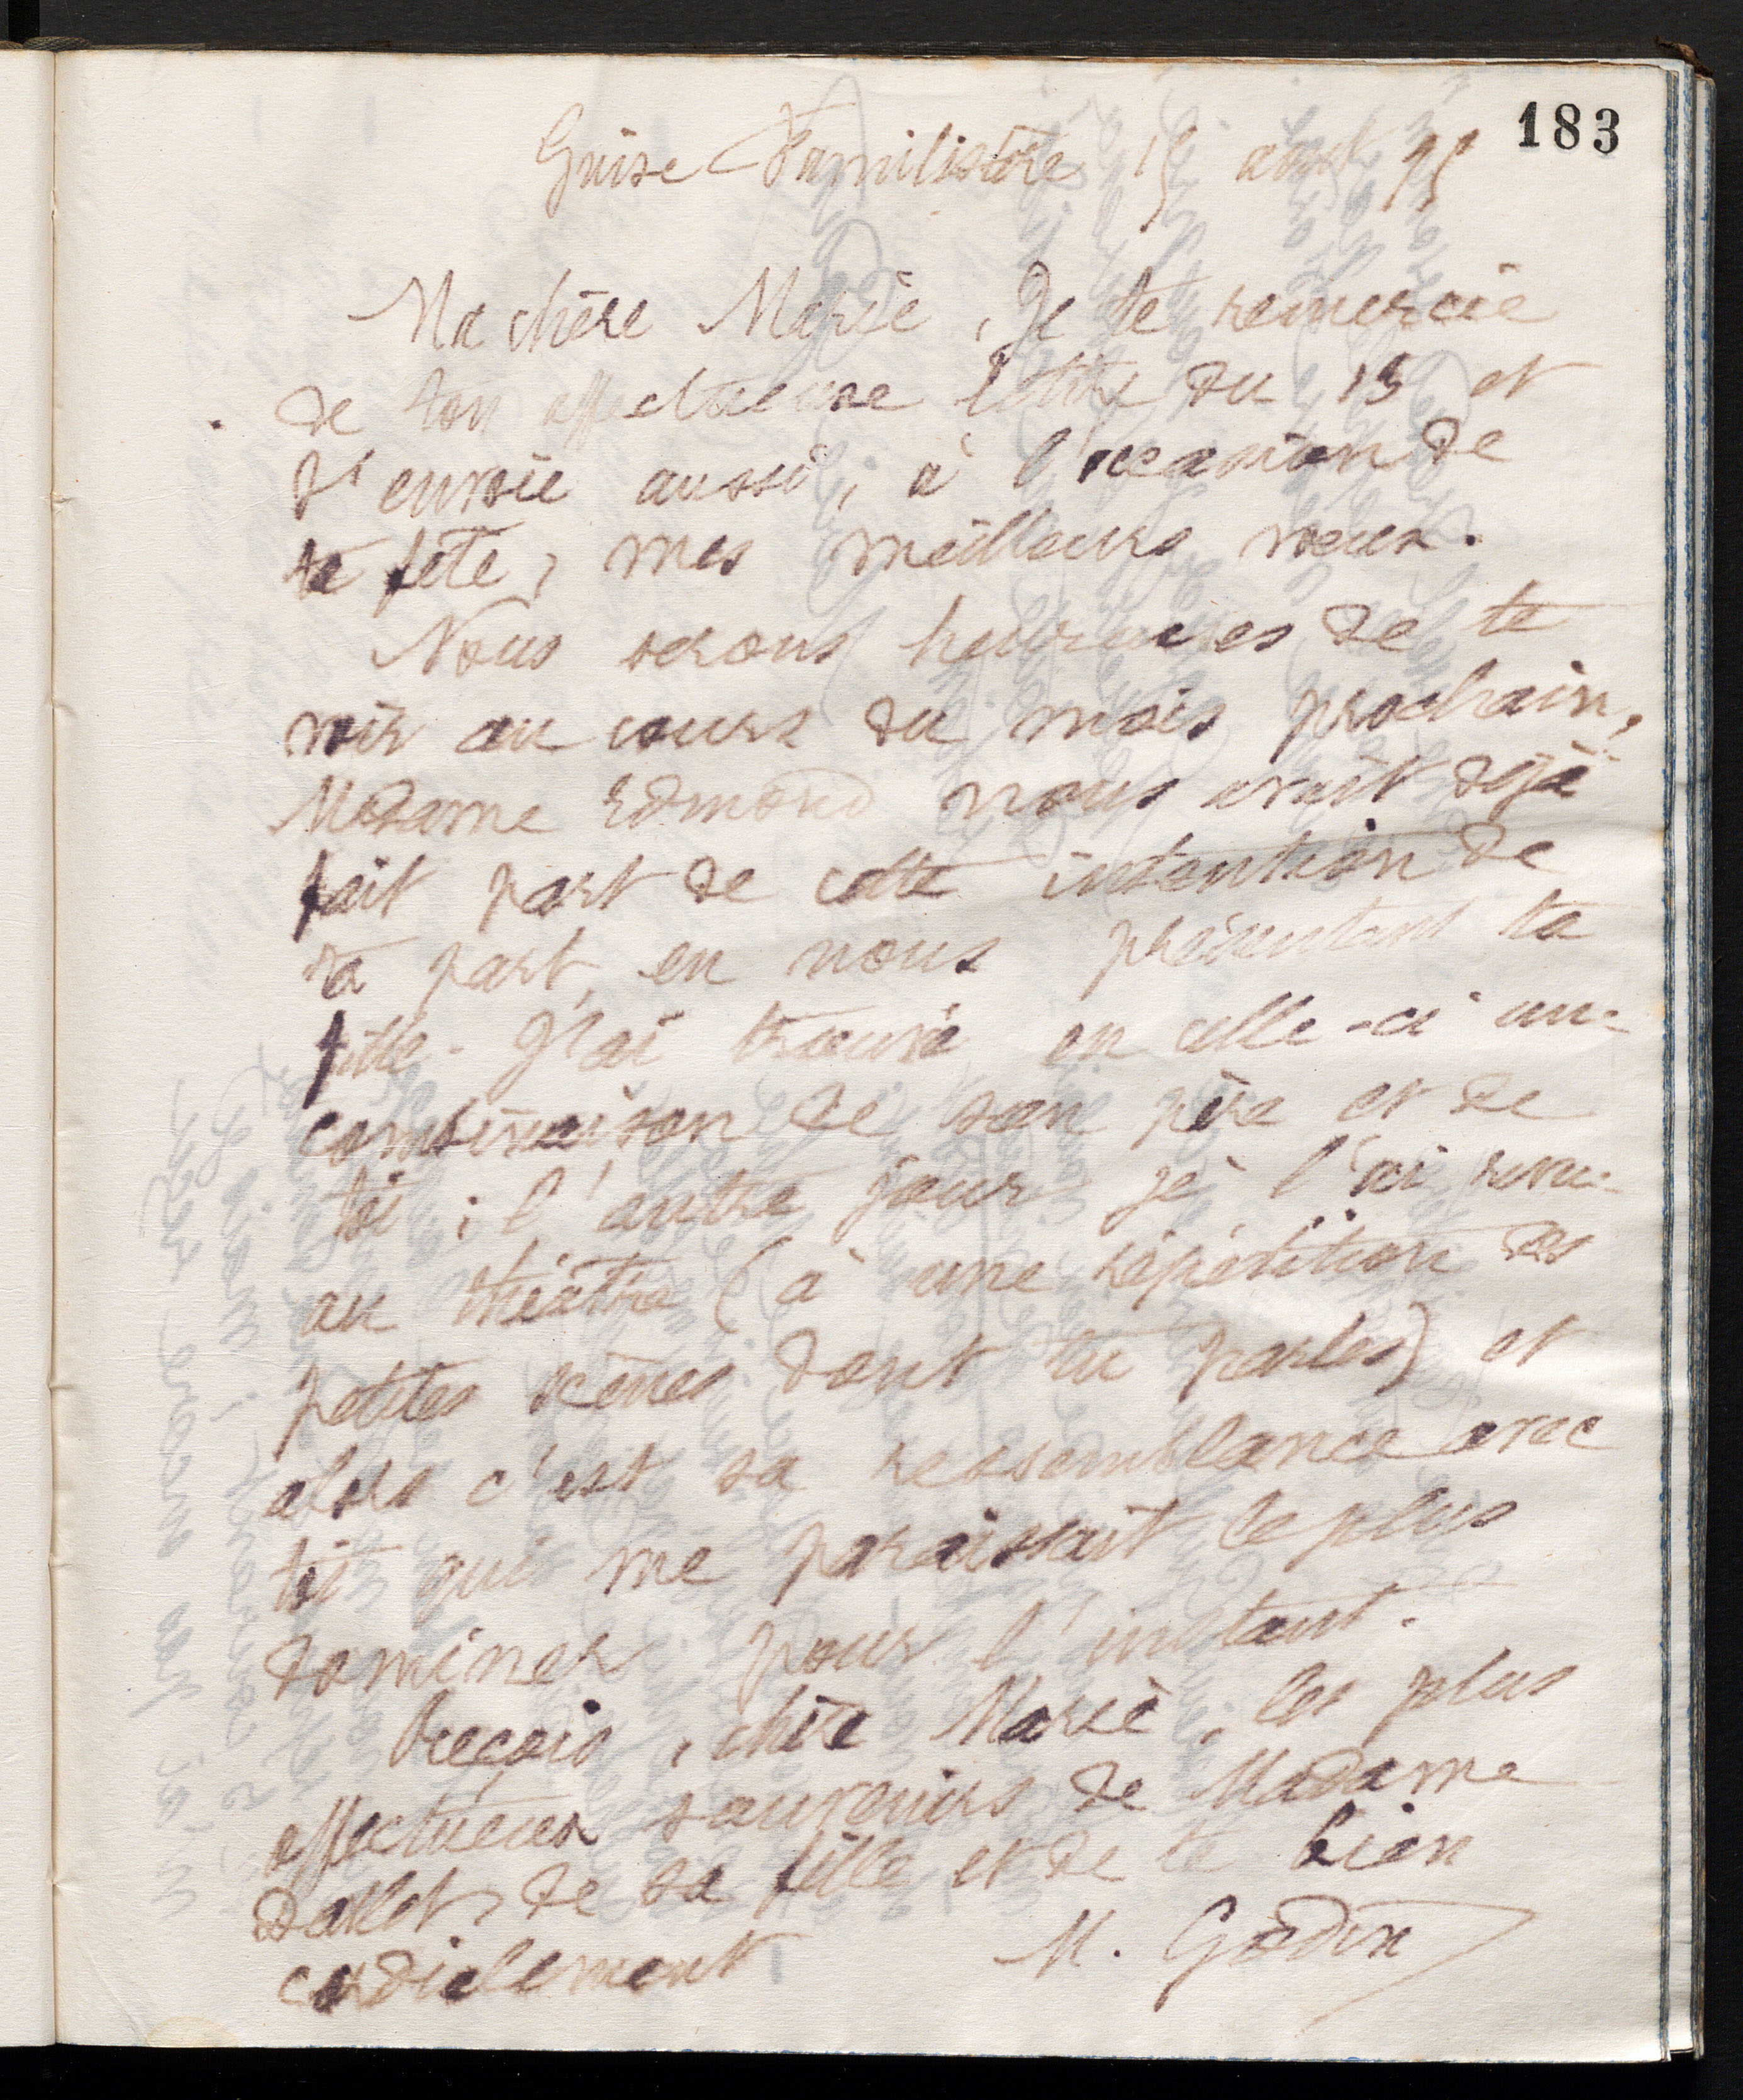 183
Guise Familistère 15 août 95
Ma chère Marie, Je te remercie
de ton affectueuse lettre du 13 et
t'envoie aussi, à l'occasion de
ta fête, mes meilleurs voeux.
Nous serons heureuses de te
voir au cours du mois prochain,
Madame Edmond nous avait déjà
fait part de cette intention de
ta part, en nous présentant ta
fille. J'ai trouvé en celle-ci une
combinaison de son père et de
toi ; l'autre jour je l'ai revue
au théâtre (à une répétition des
petites scènes dont tu parles) et
alors c'est sa ressemblance avec
toi qui me paraissait le plus
dominer pour l'instant.
Reçois, chère Marie, les plus
affectueux souvenirs de Madame
Dallet, de sa fille et de te bien
cordialement M. Godin